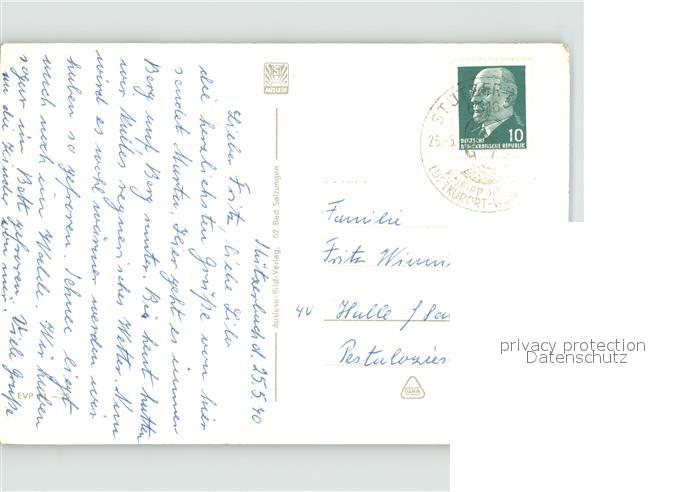 Stützerbach d. 25.5.70
Liebe Fritz, liebe Lilo
die herzlichsten Grüße von hier
sendet Martin. Hier geht es immer
Berg auf, Berg runter. Bis heut hatten
wir kühles regnerisches Wetter. Nun
wird es wohl wärmer werden wir
haben so gefroren. Schnee liegt
auch noch im Walde. Wir haben
sogar im Bett gefroren. Viele Grüße
an die Kinder
AUSLESE
Auslese-Bild-Verlag, 62 Bad Salzungen
EVP
DEUTSCHE
DEMOKRATISCHE REPUBLIK
10
KNEIPP
LUFTKURORT
Familie
Fritz
40 Halle / Saa
Pestalozzis
privacy protection
Datenschutz